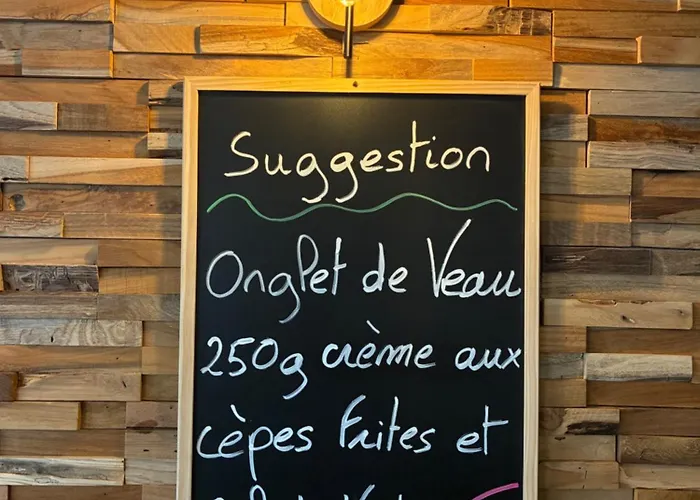 Suggestion
Onglet de Veau
250g crème aux
cèpes Frites et